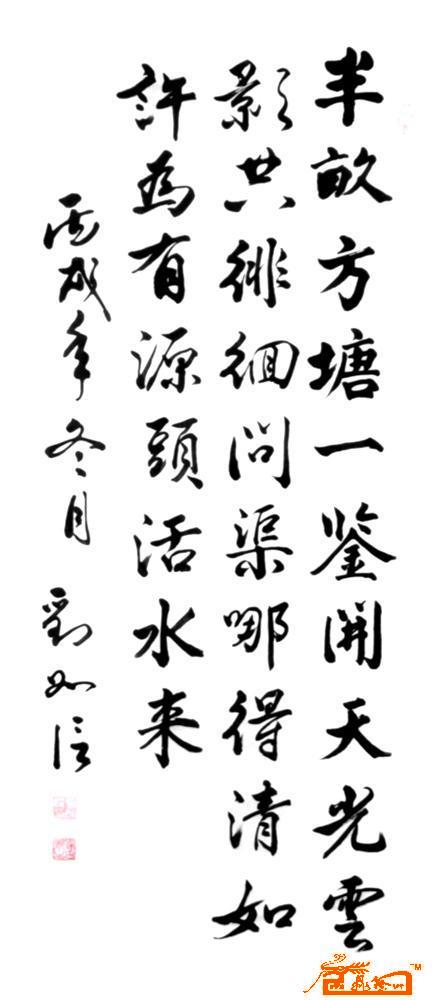 半畝方塘一鉴開天光雲
影共徘徊問渠哪得清如
許為有源頭活水来
丙戌年冬月 劉如信